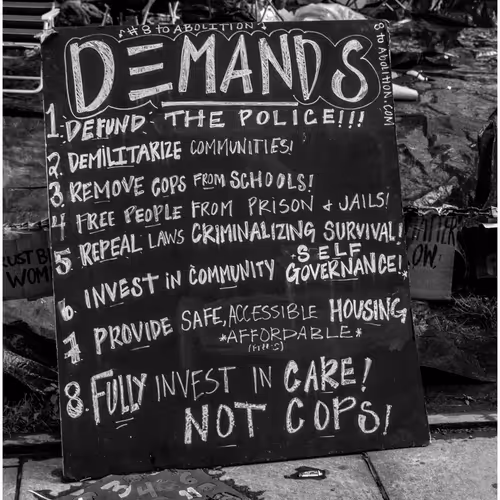 #8 TO ABOLITION
DEMANDS
8 to ABOLITION.COM
1. DEFUND THE POLICE!!!
2. DEMILITARIZE COMMUNITIES!
3. REMOVE COPS FROM SCHOOLS!
4 FREE PEOPLE FROM PRISON & JAILS!
5. REPEAL LAWS CRIMINALIZING SURVIVAL!
SELF
6 INVEST IN COMMUNITY GOVERNANCE!
7 PROVIDE SAFE, ACCESSIBLE HOUSING
*AFFORDABLE*
8. FULLY INVEST IN CARE!
NOT COPS!